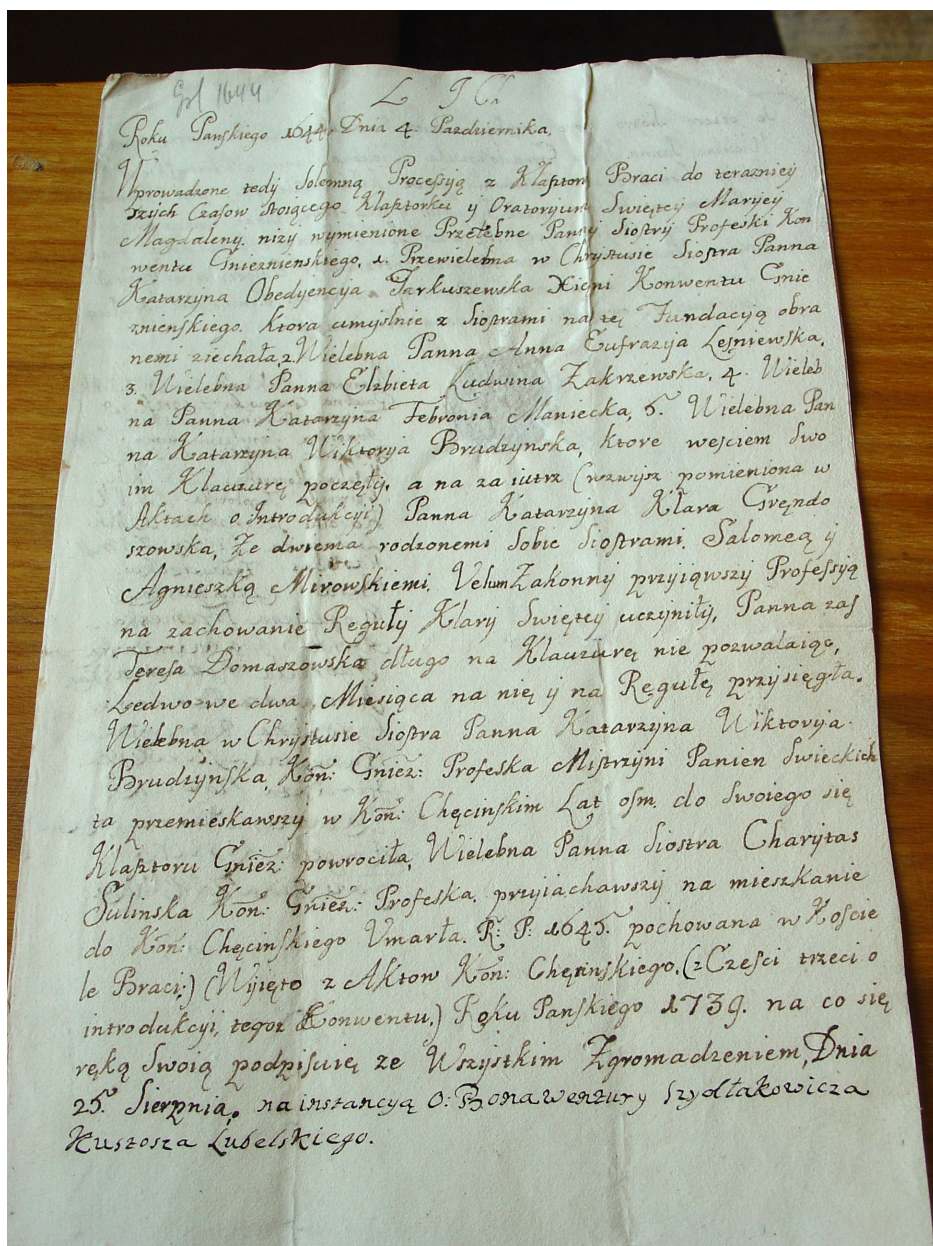 1644
Roku Pańskiego 1644. Dnia 4. Pazdziernika,
Wprowadzone tedy Solemną Processyą z Klasztoru Braci do terazniey
szych Czasow stoiącego Klasztorku y Oratoryum Swiętey Maryey
Magdaleny. niży wymienione Przełebne Panny Siostry Profeski Kon
wentu Gnieznieńskiego, 1. Przewielebna w Chrystusie Siostra Panna
Katarzyna Obedyencya Jarkuszewska Xieni Konwentu Gnie
znieńskiego. Ktora umyslnie z Siostrami na tę Fundacyą obra
nemi ziechała, 2. Wielebna Panna Anna Eufrazyja Leśniewska,
3. Wielebna Panna Elzbieta Ludwina Zakrzewska, 4. Wieleb
na Panna Katarzyna Febronia Maniecka, 5. Wielebna Pan
na Katarzyna Wiktoryja Brudzynska, ktore weyściem Swo
im Klauzurę poczęły. a na za iutrz (wzwysz pomieniona w
Aktach o Introdukcyi) Panna Katarzyna Klara Gręndo
szowska, Ze dwiema rodzonemi Sobie Siostrami. Salomeą y
Agnieszką Mirowskiemi. Velum Zakonny przyiąwszy Professyą
na zachowanie Reguły Klary Swiętey uczyniły, Panna zas
Teresa Domaszowska długo na Klauzurę nie pozwalaiąc,
Ledwo we dwa Miesiąca na nię y na Regułę przysięgła.
Wielebna w Chrystusie Siostra Panna Katarzyna Wiktoryja
Brudzyńska, Kon: Gniez: Profeska Mistrzyni Panien Swieckich
ta przemieskawszy w Kon: Chęcinskim Lat osm. do Swoiego się
Klasztoru Gniez: powrociła, Wielebna Panna Siostra Charytas
Sulinska Kon: Gniez: Profeska. przyiachawszy na mieszkanie
do Kon: Chęcińskiego Vmarła. R: P: 1645. pochowana w Koscie
le Braci:) (Wyięto z Aktow Kon: Chęcinskiego. (z Częsci trzeci o
introdukcyi, tegoz Konwentu.) Roku Pańskiego 1739. na co się
ręką Swoią podpisuię ze Wszystkim Zgromadzeniem, Dnia
25. Sierpnia. na instancyą O: Bonawentury Szydłakowicza
Kustosza Lubelskiego.